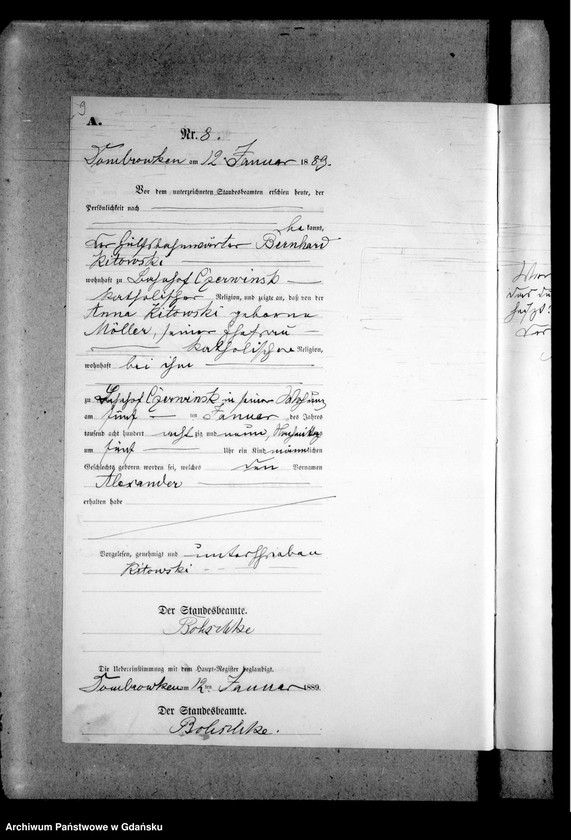 9
A.
Nr. 8.
Dombrowken am 12 Januar 1889.
Vor dem unterzeichneten Standesbeamten erschien heute, der
Persönlichkeit nach
be kannt,
der Hülfsbahnwärter Bernhard
Kitowski
wohnhaft zu Bahnhof Czerwinsk
katholischer Religion, und zeigte an, daß von der
Anna Kitowski geborne
Möller, seiner Ehefrau
katholischer Religion,
wohnhaft bei ihm
zu Bahnhof Czerwinsk in seiner Wohnung
am fünf ten Januar des Jahres
tausend acht hundert acht zig und neun, Nachmittags
um fünf Uhr ein Kind männlichen
Geschlechts geboren worden sei, welches den Vornamen
Alexander
erhalten habe
Vorgelesen, genehmigt und unterschrieben
Kitowski
Der Standesbeamte.
Bohschke
Die Uebereinstimmung mit dem Haupt-Register beglaubigt.
Dombrowken am 12 ten Januar 1889.
Der Standesbeamte.
Bohschke.
Archiwum Państwowe w Gdańsku